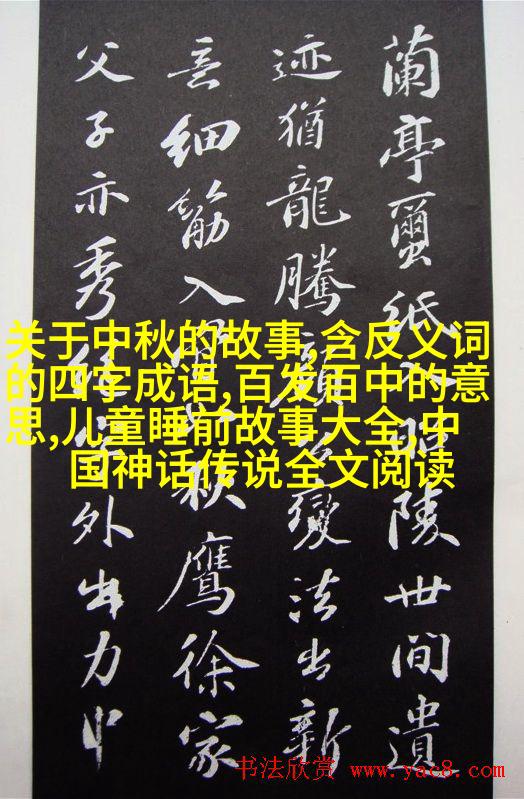 蘭亭蠒紙入昭陵世間遺
迹猶龍騰顏公變法出新
意細筋入骨如秋鷹徐家
父子亦秀絕字外出力中
关于中秋的故事,含反义词
的四字成语,百发百中的意
思,儿童睡前故事大全,中
国神话传说全文阅读
书法欣赏 www.yac8.com